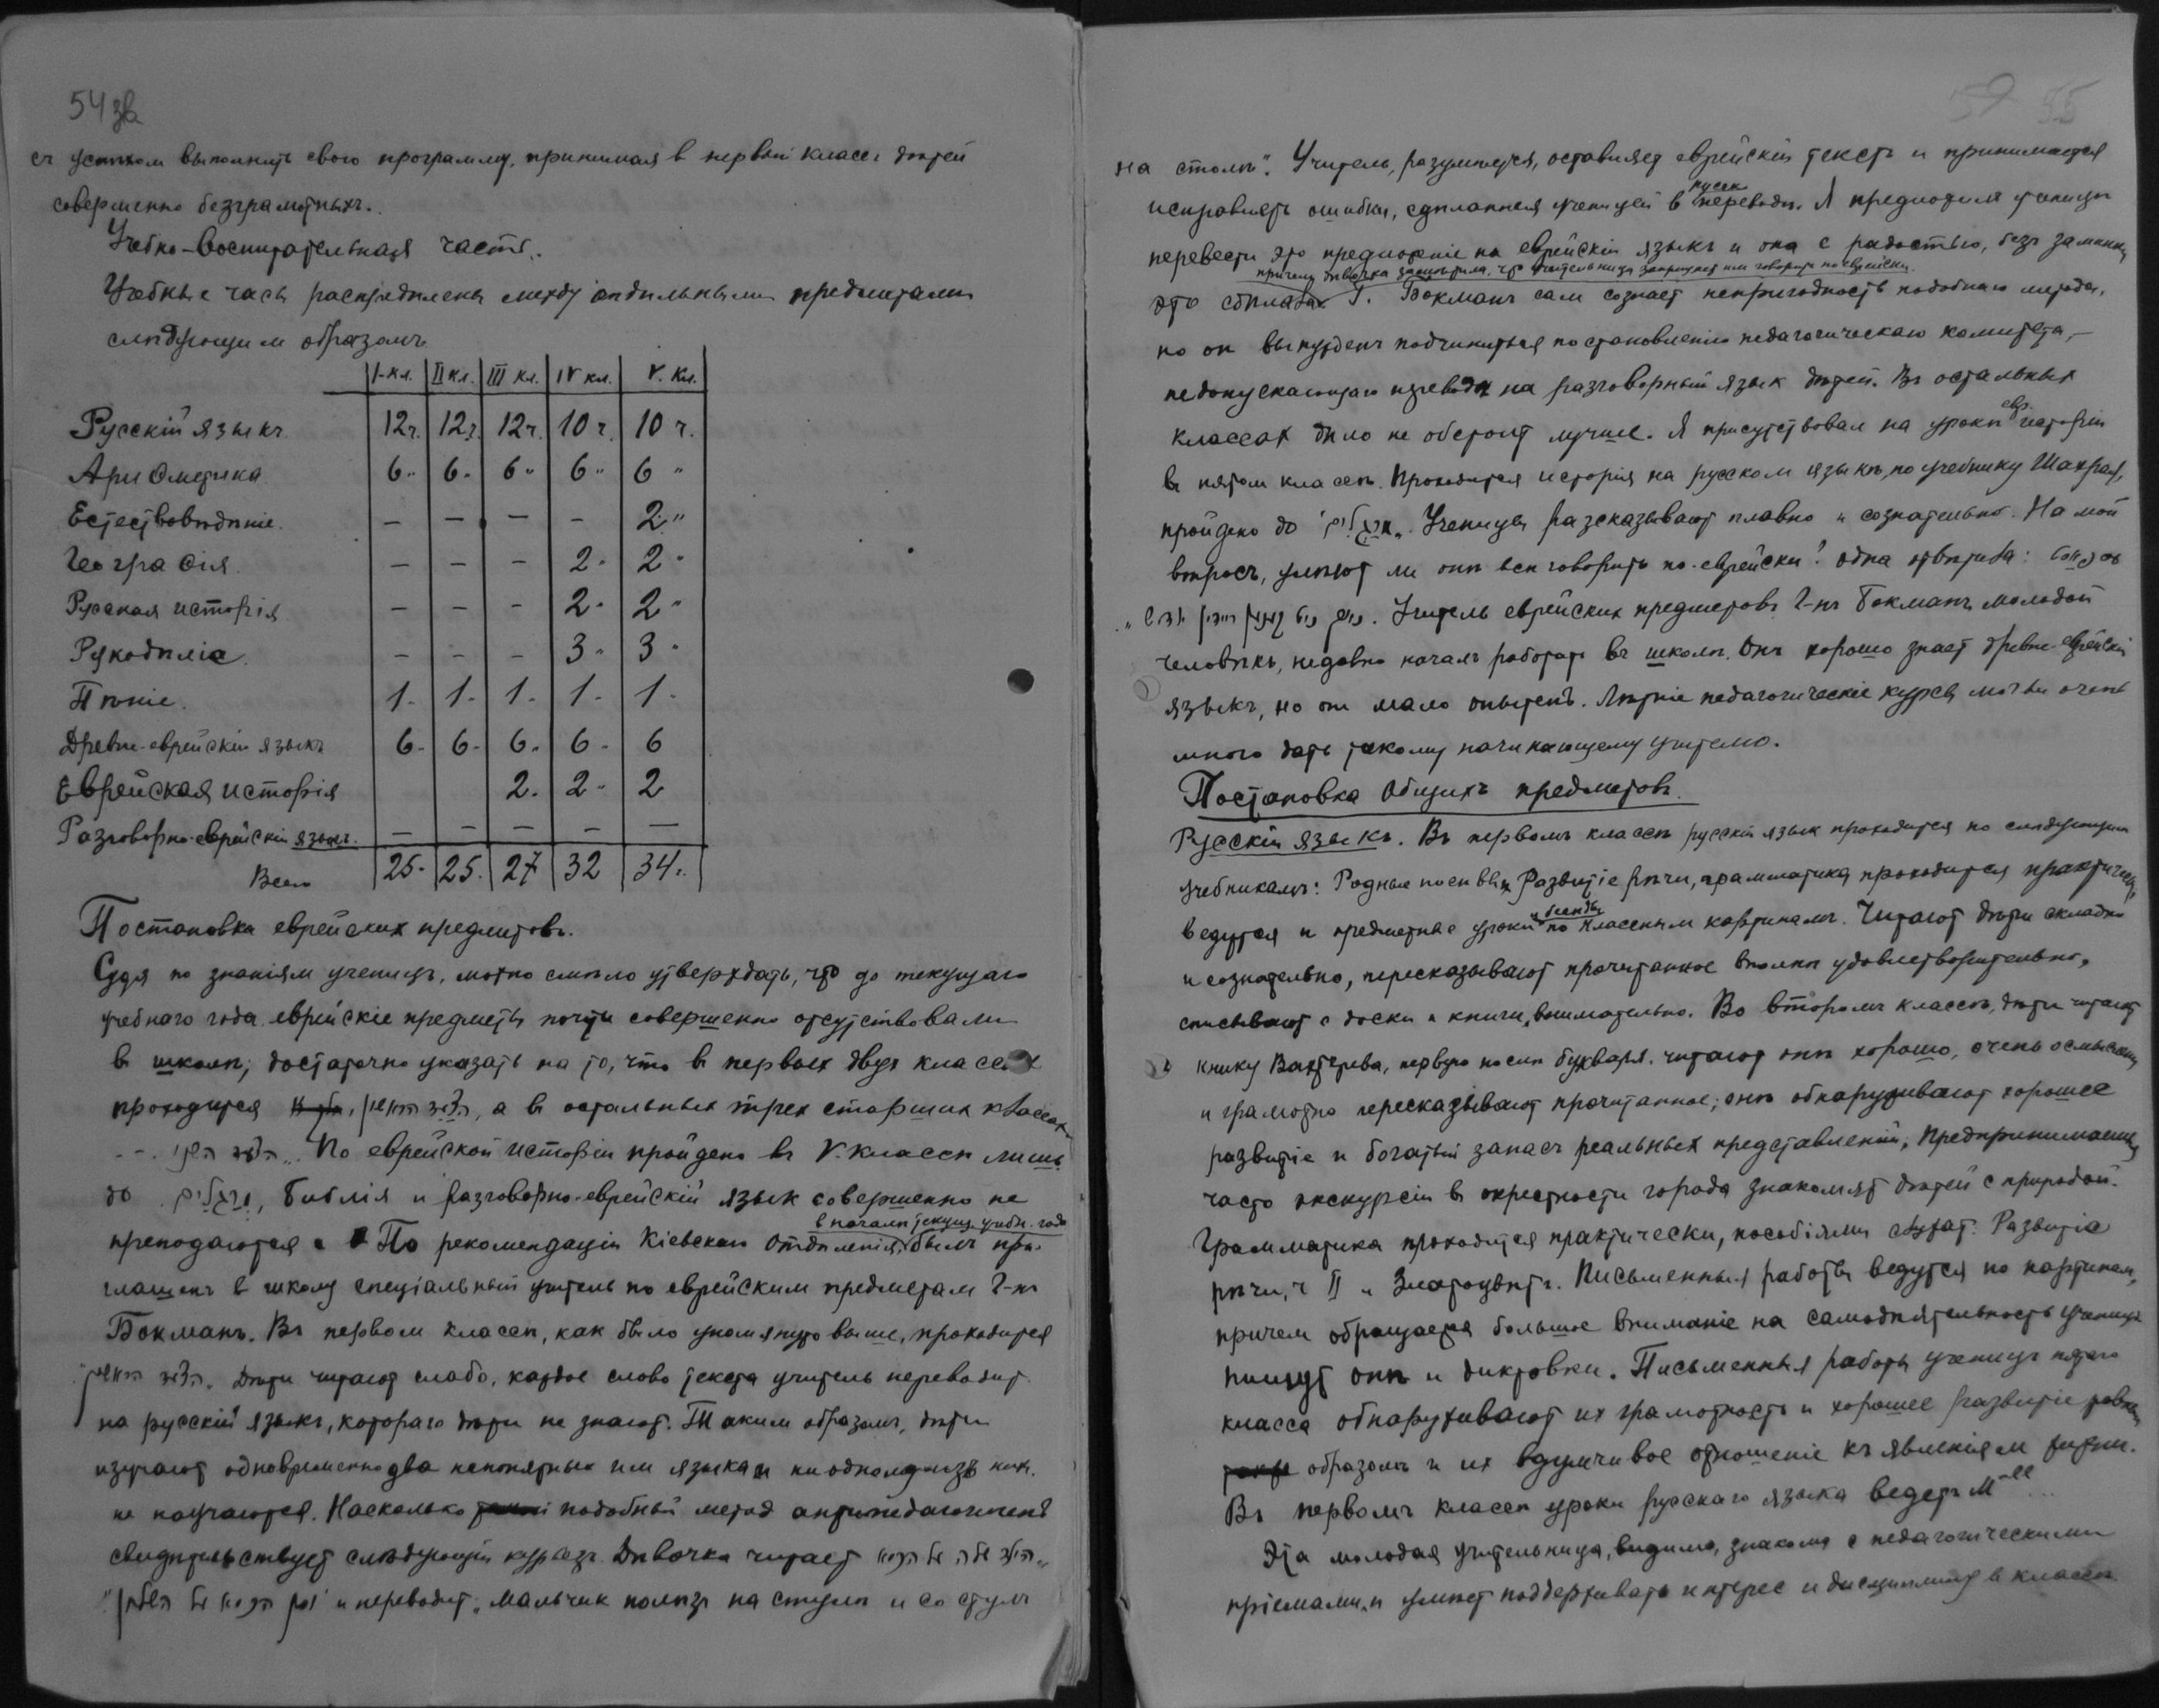 54 зв
съ успѣхом выполнить свою программу, принимая в первый классъ дѣтей
совершенно безграмотныхъ.
Учебно-воспитательная часть.
Учебные часы распредѣлены между отдѣльными предметами
слѣдующим образомъ
I-кл. II кл. III кл. IV кл. V. кл.
Русскій языкъ 12 ч. 12 ч. 12 ч. 10 ч. 10 ч.
Ариѳметика 6 " 6 " 6 " 6 " 6 "
Естествовѣдѣніе. — — — — 2 "
Географія. — — — 2 " 2 "
Русская исторія — — — 2 " 2 "
Рукодѣліе. — — — 3 " 3 "
Пѣніе. 1 " 1 " 1 " 1 " 1 "
Древне-еврейскій языкъ 6 " 6 " 6 " 6 " 6
Еврейская исторія 2 " 2 " 2
Разговорно-еврейскій языкъ. — — — — —
Всего 25 " 25 " 27 32 34 ".
Постановка еврейских предметовъ.
Судя по знаніям ученицъ, можно смѣло утверждать, что до текущаго
учебнаго года еврейскіе предметы почти совершенно отсутствовали
в школѣ; достаточно указать на то, что в первых двух классах
проходится, а в остальных трех старших классах
По еврейской исторіи пройдено въ V. классѣ лишь
до, Библія и разговорно-еврейскій язык совершенно не
преподаются. По рекомендаціи Кіевскаго Отдѣленія, в началѣ текущ. учебн. года был при-
глашенъ в школу спеціальный учитель по еврейским предметам г-нъ
Бокманъ. Въ первом классѣ, как было упомянуто выше, проходится
Дѣти читают слабо, каждое слово текста учитель переводит
на русскій языкъ, котораго дѣти не знают. Таким образомъ, дѣти
изучают одновременно два непонятных им языка и ни одному изъ них
не научаются. Насколько подобный метод антипедагогиченъ
свидѣтельствует слѣдующій курьезъ. Дѣвочка читает
и переводит „мальчик полѣзъ на стулъ и со стула
55
на столъ". Учитель, разумѣется, оставляет еврейскій текстъ и принимается
исправлять ошибки, сдѣланныя ученицей в русск. переводѣ. Я предложил ученицѣ
перевести это предложеніе на еврейскій языкъ и она с радостью, безъ заминки
это сдѣлала, причем дѣвочка замѣтила, что учительница запрещает им говорить по еврейски.
Г. Бокманъ сам сознает непригодность подобнаго метода,
но он вынужденъ подчиниться постановленію педагогическаго комитета,—
недопускающаго перевода на разговорный язык дѣтей. Въ остальных
классах дѣло не обстоит лучше. Я присутствовал на урокѣ евр. исторіи
в пятом классѣ. Проходится исторія на русском языкѣ, по учебнику Шахрая,
пройдено до. Ученицы разсказывают плавно и сознательно. На мой
вопросъ, умѣют ли онѣ всѣ говорить по-еврейски? одна отвѣтила:
Учитель еврейских предметовъ г-нъ Бокманъ молодой
человѣкъ, недавно началъ работать въ школѣ. Онъ хорошо знает древне-еврейскій
языкъ, но он мало опытенъ. Лѣтніе педагогическіе курсы могли очень
много дать такому начинающему учителю.
Постановка общихъ предметовъ.
Русскій языкъ. Въ первомъ классѣ русскій язык проходится по слѣдующим
учебникамъ: Родные посѣвы, Развитіе рѣчи, грамматика проходится практически,
ведутся и предметные уроки и бесѣды по класснымъ картинамъ. Читают дѣти складно
и сознательно, пересказывают прочитанное вполнѣ удовлетворительно,
списывают с доски и книги внимательно. Во второмъ классѣ дѣти читают
книгу Вахтерова, первую послѣ букваря. читают онѣ хорошо, очень осмысленно
и грамотно пересказывают прочитанное; онѣ обнаруживают хорошее
развитіе и богатый запасъ реальных представленій. Предпринимаемыя
часто экскурсіи в окрестности города знакомят дѣтей с природой.
Грамматика проходится практически, пособіями служат: Развитіе
рѣчи, ч II и Златоцвѣтъ. Письменныя работы ведутся по картинам,
причем обращается большое вниманіе на самодѣятельность ученицъ
пишут онѣ и диктовки. Письменныя работы ученицъ пятаго
класса обнаруживают их грамотность и хорошее развитіе равным
образомъ и их вдумчивое отношеніе къ явленіям жизни.
Въ первомъ классѣ уроки русскаго языка ведетъ M-lle ...
Эта молодая учительница, видимо, знакома с педагогическими
пріемами и умѣет поддерживать интерес и дисциплину в классѣ